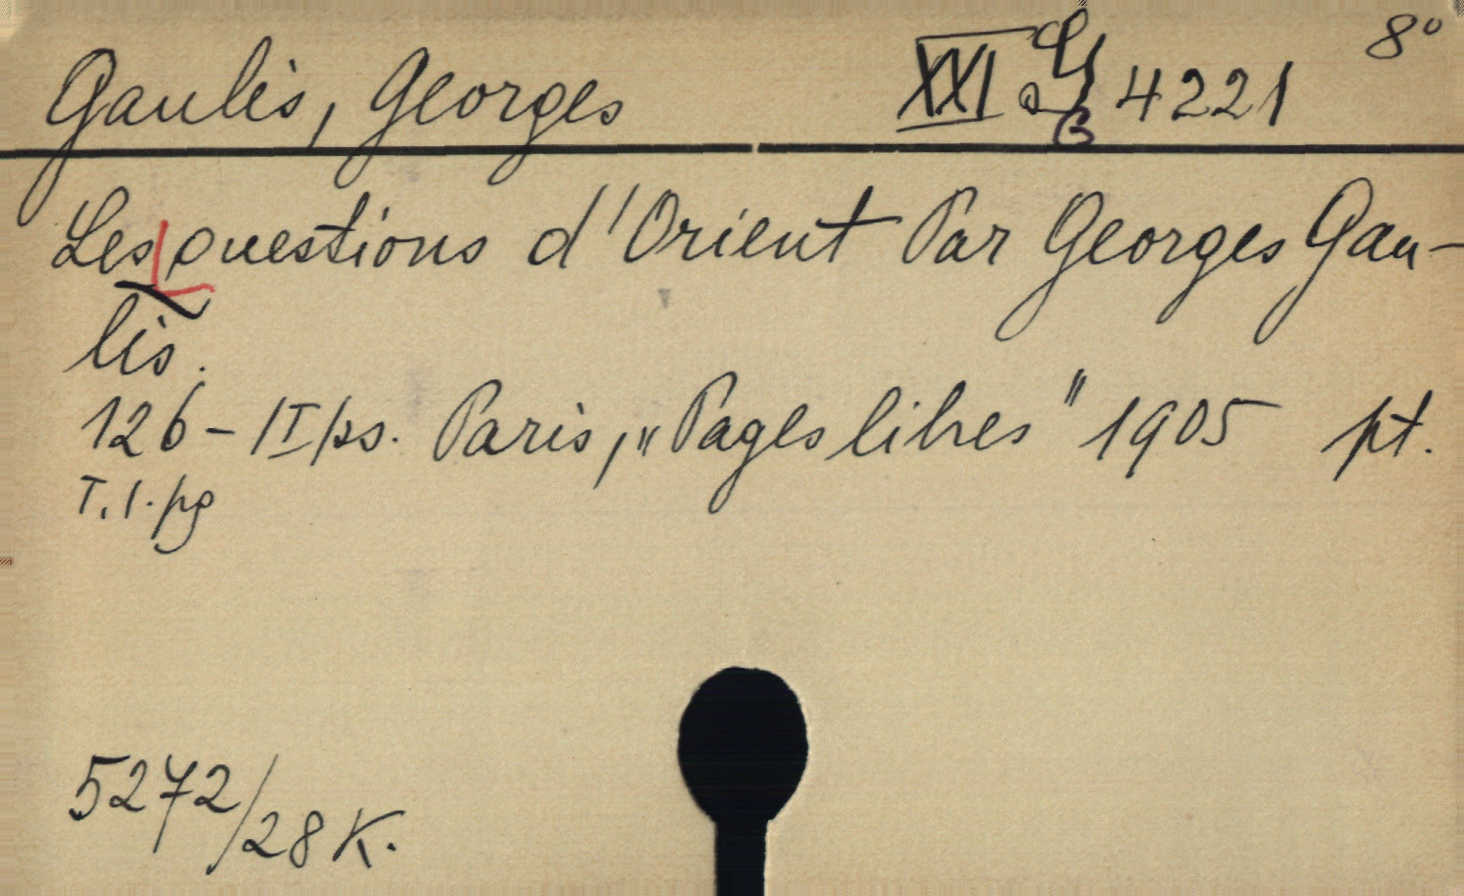 Gaulis, Georges XXI G 4221 8°
B
Les questions d'Orient Par Georges Gau-
lis.
126 - /I/ ps. Paris, „Pages libres" 1905 pt.
T. 1. pg
5272/28 K.